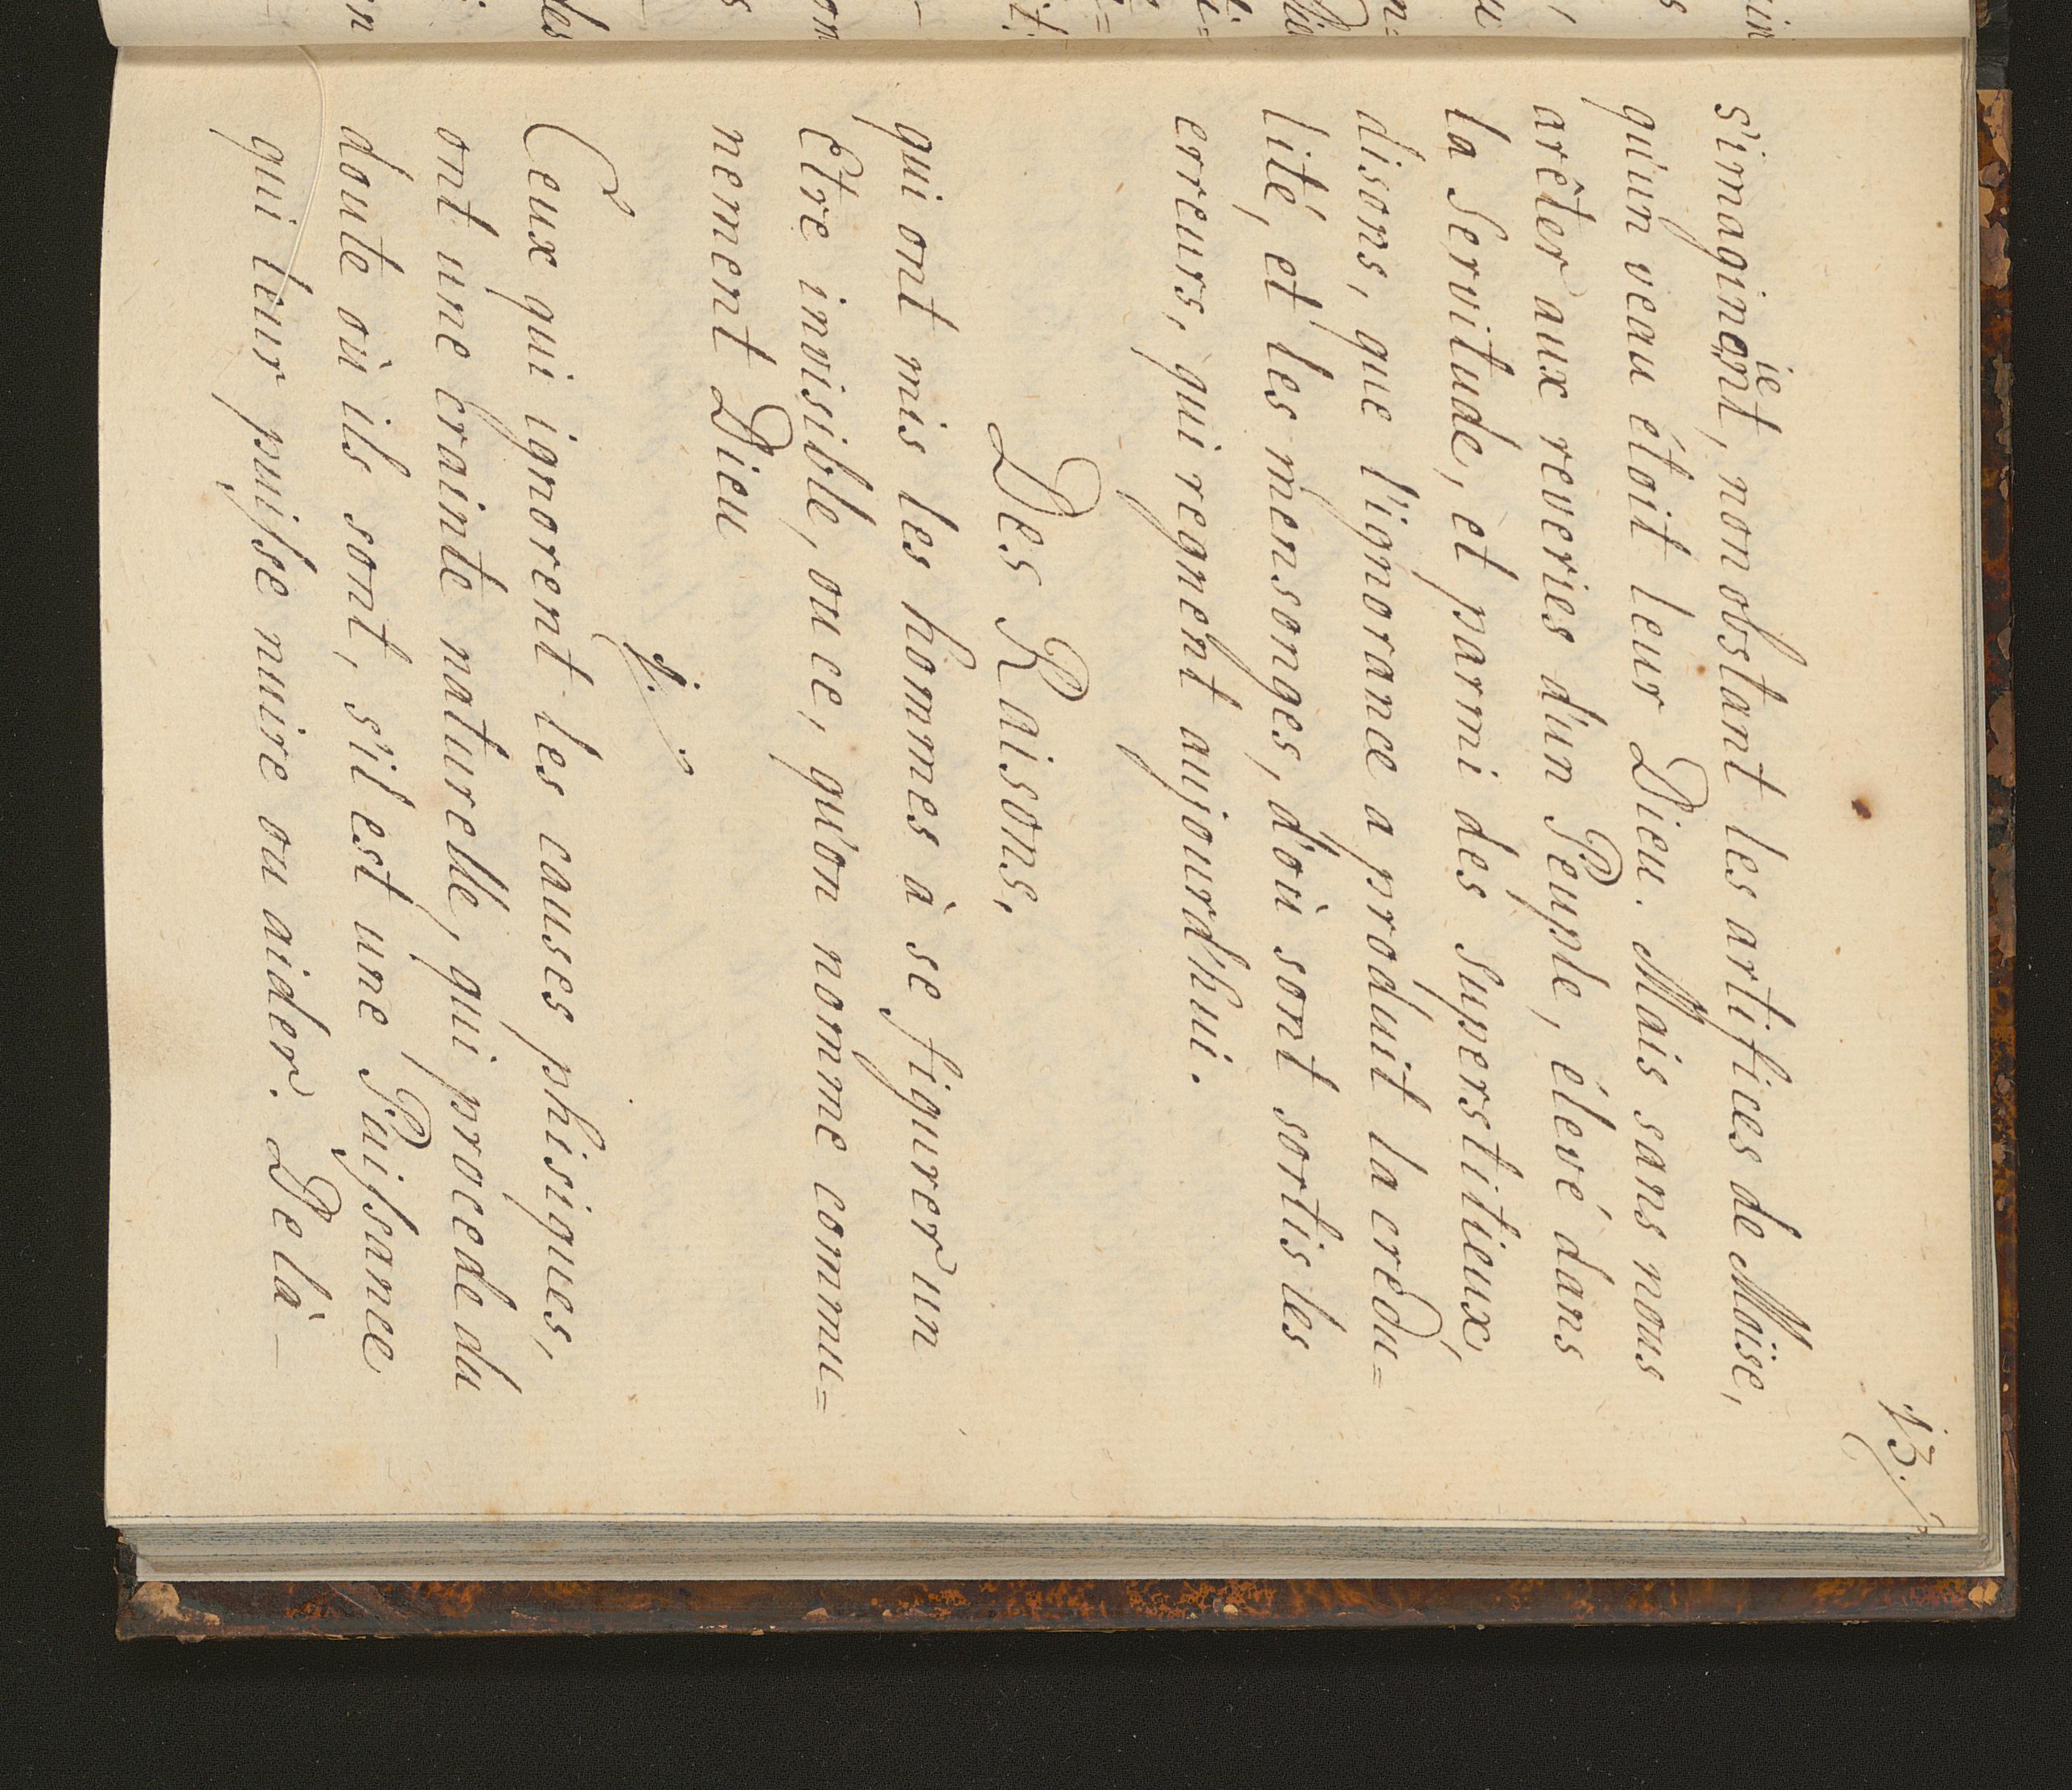 13.
s'imaginerient, nonobstant les artifices de Moïse,
qu'un veau étoit leur Dieu. Mais sans nous
arêter aux reveries d'un Peuple, élevé dans
la Servitude, et parmi des Superstitieux,
disons, que l'ignorance a produit la crédu=
lité, et les mensonges, d'où sont sortis les
erreurs, qui regnent aujourd'hui.
Des Raisons,
qui ont mis les hommes à se figurer un
Etre invisible, ou ce, qu'on nomme commu=
nement Dieu
1.
Ceux qui ignorent les causes phisiques,
ont une crainte naturelle, qui procede du
doute où ils sont, s'il est une Puissance
qui leur puisse nuire ou aider. De là -